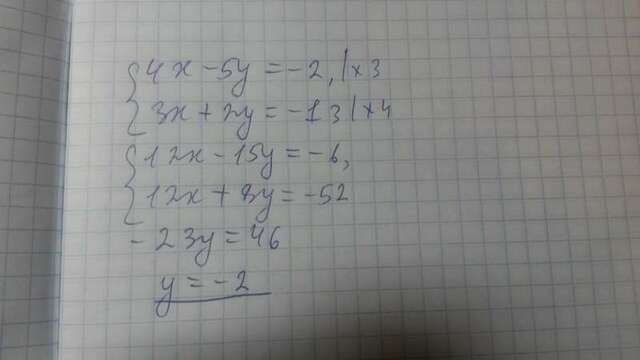 {4x - 5y = -2, |×3
3x + 2y = -13 |×4
{12x - 15y = -6,
12x + 8y = -52
-23y = 46
y = -2